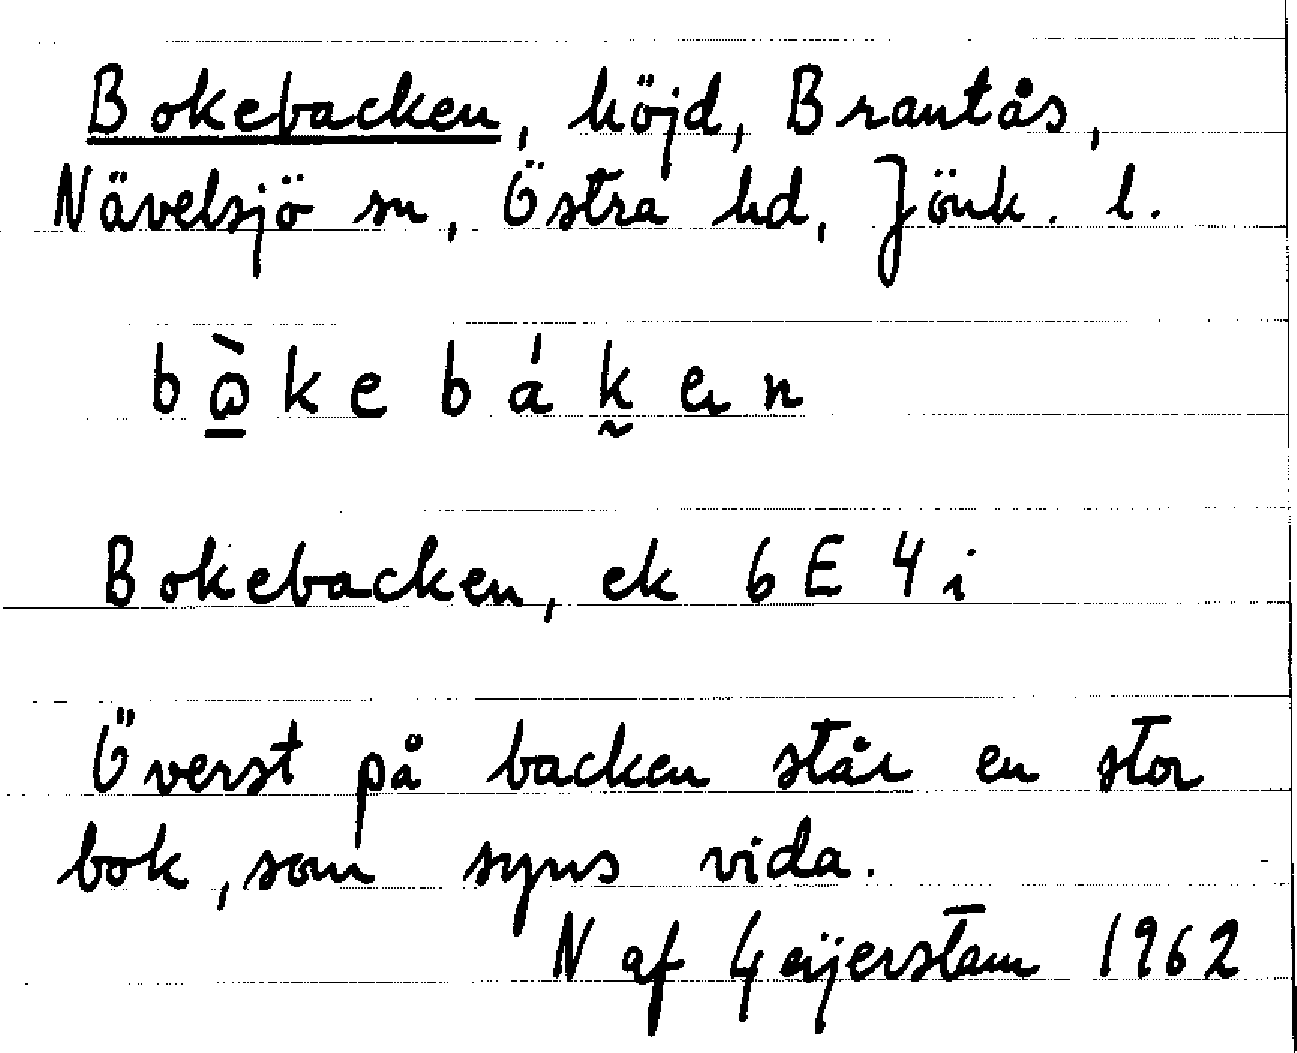 Bokebacken, höjd, Brantås,
Nävelsjö sn, Östra hd, Jönk. l.
bò̱kebák̰en
Bokebacken, ek 6E 4i
Överst på backen står en stor
bok, som syns vida.
N af Geijerstam 1962